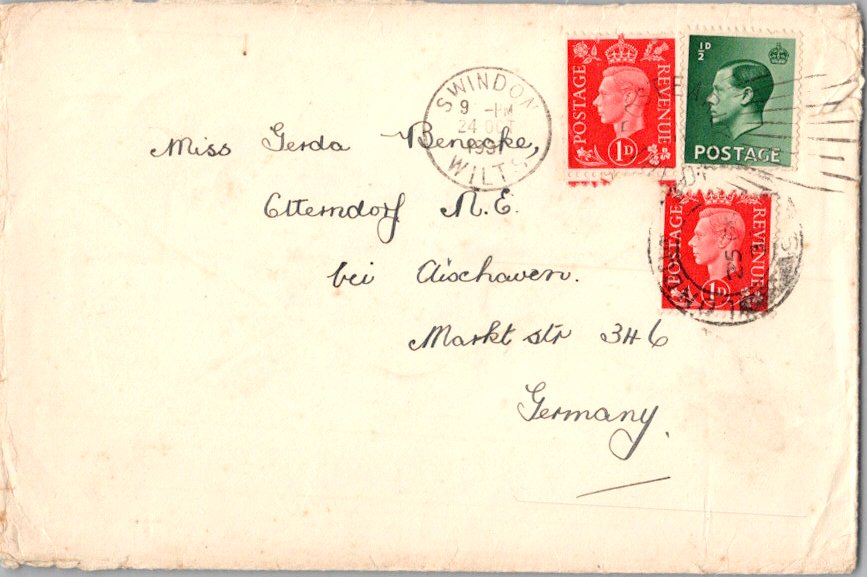 POSTAGE
REVENUE
1D
½D
POSTAGE
SWINDON
9 - PM
24 OCT
193
WILTS
Miss Gerda Benecke,
Otterndorf N.E.
bei Cuxhaven.
Markt str 346
Germany.
POSTAGE
REVENUE
1D
25